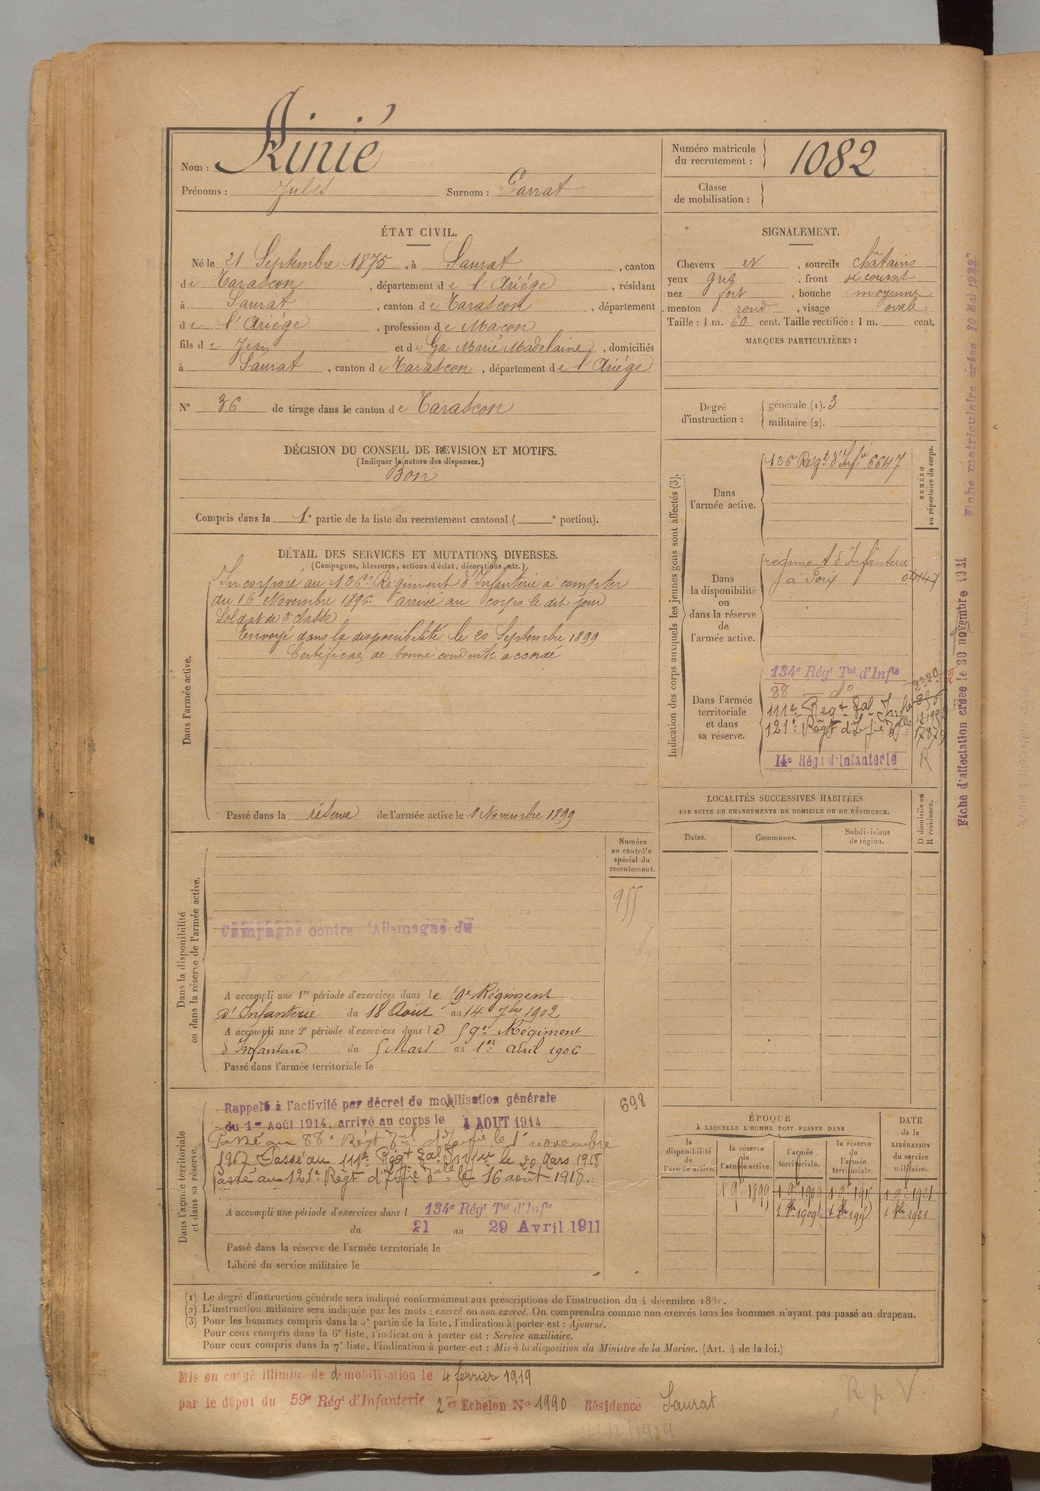 Nom : Rinié
Prénoms : Jules Surnom : Parrat
Numéro matricule du recrutement : 1082
Classe de mobilisation :
ÉTAT CIVIL.
Né le 21 Septembre 1875, à Saurat, canton
de Tarascon, département de l'Ariége, résidant
à Saurat, canton de Tarascon, département
de l'Ariége, profession de Macon
fils de Jean et de Ga Marie Madelaine, domiciliés
à Saurat, canton de Tarascon, département de l'Ariége
N° 36 de tirage dans le canton de Tarascon
SIGNALEMENT.
Cheveux et, sourcils châtains
yeux gris, front découvert
nez fort, bouche moyenne
menton rond, visage ovale
Taille : 1 m. 60 cent. Taille rectifiée : 1 m. cent.
MARQUES PARTICULIÈRES :
Degré d'instruction : générale (1). 3
militaire (2).
DÉCISION DU CONSEIL DE REVISION ET MOTIFS.
(Indiquer la nature des dispenses.)
Bon
Compris dans la 1e partie de la liste du recrutement cantonal ( e portion).
DÉTAIL DES SERVICES ET MUTATIONS DIVERSES.
(Campagnes, blessures, actions d'éclat, décorations, etc.)
Dans l'armée active.
Incorporé au 126e Régiment d'Infanterie à compter
du 16 Novembre 1896 arrivé au corps le dit jour
Soldat de 2e classe
Envoyé dans la disponibilité le 20 Septembre 1899
Certificat de bonne conduite accordé
Passé dans la réserve de l'armée active le 1 Novembre 1899
Indication des corps auxquels les jeunes gens sont affectés (3).
NUMÉRO au répertoire du corps.
Dans l'armée active.
126e Régt d'Infie 6647
Dans la disponibilité ou dans la réserve de l'armée active.
régiment d'Infanterie
à Foix
Dans l'armée territoriale et dans sa réserve.
134e Régt Tial d'Infie 2320
88 — do
111e Régt Tal Infie
121e Régt d'Infie
14e Régt d'Infanterie R
LOCALITÉS SUCCESSIVES HABITÉES
PAR SUITE DE CHANGEMENTS DE DOMICILE OU DE RÉSIDENCE.
Dates. Communes. Subdivisions de région.
D domicile ou R résidence.
Dans la disponibilité ou dans la réserve de l'armée active.
Numéro au contrôle spécial du recrutement.
955
Campagne contre l'Allemagne du
A accompli une 1re période d'exercices dans le 59e Régiment
d'Infanterie du 18 Août au 14 7bre 1902
A accompli une 2e période d'exercices dans le 59e Régiment
d'Infanterie du 5 Mars au 1er avril 1906
Passé dans l'armée territoriale le
Dans l'armée territoriale et dans sa réserve.
698
Rappelé à l'activité par décret de mobilisation générale
du 1er Août 1914, arrivé au corps le 4 AOUT 1914
Passé au 88e Régt Tal d'Infie le 1 novembre
1917 Passé au 111e Régt Tal Infie le 20 Mars 1918
Passé au 121e Régt d'Infie le 16 août 1918.
A accompli une période d'exercices dans l 134e Régt Tial d'Infie
du 21 au 29 Avril 1911
Passé dans la réserve de l'armée territoriale le
Libéré du service militaire le
ÉPOQUE
À LAQUELLE L'HOMME DOIT PASSER DANS
la disponibilité de l'armée active. la réserve de l'armée active. l'armée territoriale. la réserve de l'armée territoriale.
DATE de la LIBÉRATION du service militaire.
1 9e 1899 1 9e 1909 1 9e 1915 1 9e 1921
1 8bre 1909 1 8bre 1915 1 8bre 1921
(1) Le degré d'instruction générale sera indiqué conformément aux prescriptions de l'instruction du 4 décembre 1889.
(2) L'instruction militaire sera indiquée par les mots : exercé ou non exercé. On comprendra comme non exercés tous les hommes n'ayant pas passé au drapeau.
(3) Pour les hommes compris dans la 5e partie de la liste, l'indication à porter est : Ajourné.
Pour ceux compris dans la 6e liste, l'indication à porter est : Service auxiliaire.
Pour ceux compris dans la 7e liste, l'indication à porter est : Mis à la disposition du Ministre de la Marine. (Art. 4 de la loi.)
Mis en congé illimité de démobilisation le 4 février 1919
par le dépôt du 59e Régt d'Infanterie 2e Echelon No 1990 Résidence Saurat
R p V.
Fiche matriculaire créée 20 Mai 1922
Fiche d'affectation créée le 30 novembre 1911